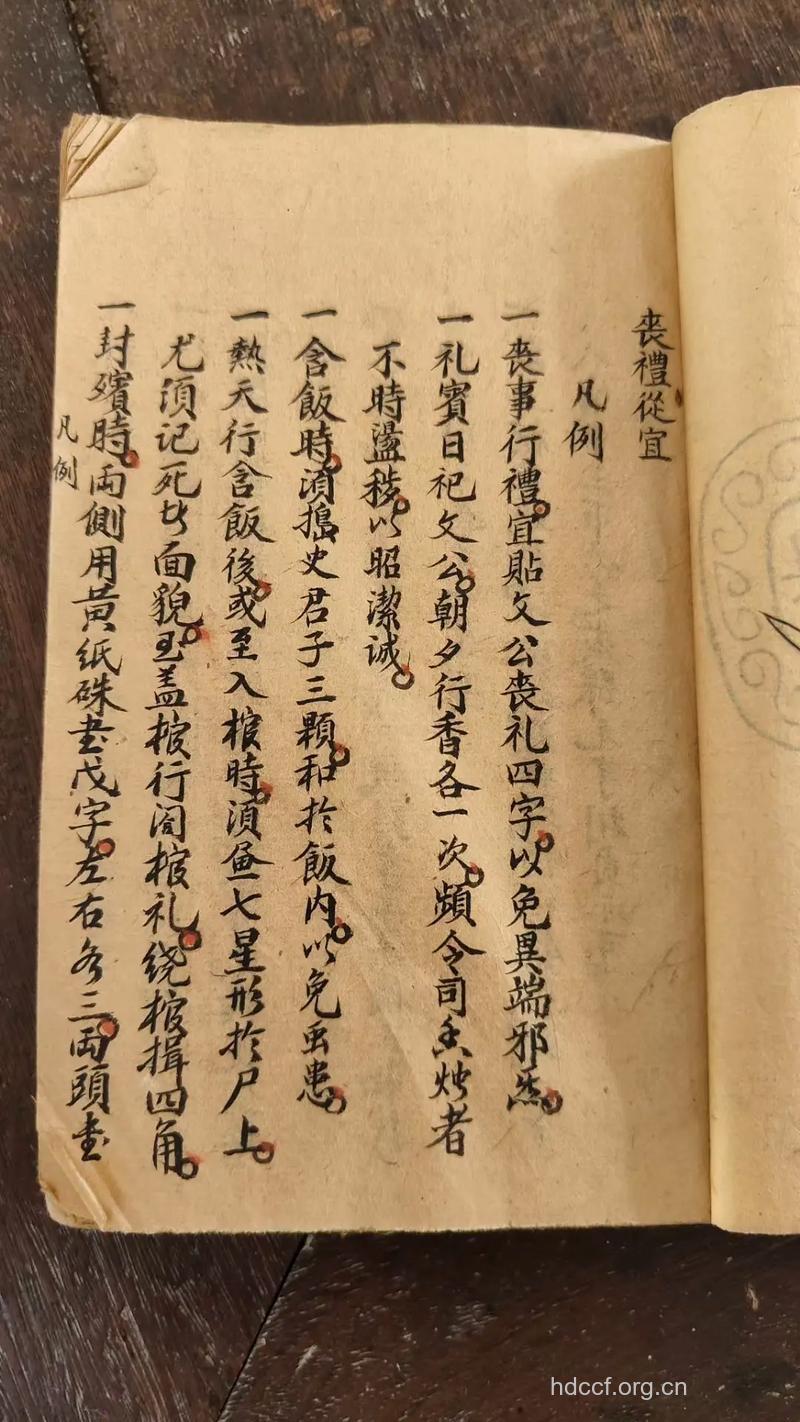 喪禮從宜
凡例
一喪事行禮。宜貼文公喪礼四字。以免異端邪炁。
一礼賓日祀文公。朝夕行香各一次。頻令司香燭者
不時盪穢。以昭潔誠。
一含飯時。須搗史君子三顆。和於飯内。以免虫患。
一熱天行含飯後。或至入棺時。須畳七星形於尸上。
尤須记死者面貌。至盖棺行闔棺礼。绕棺揖四角。
一封殯時。両側用黄纸硃書戊字。左右各三。両頭書
凡例
hdccf.org.cn